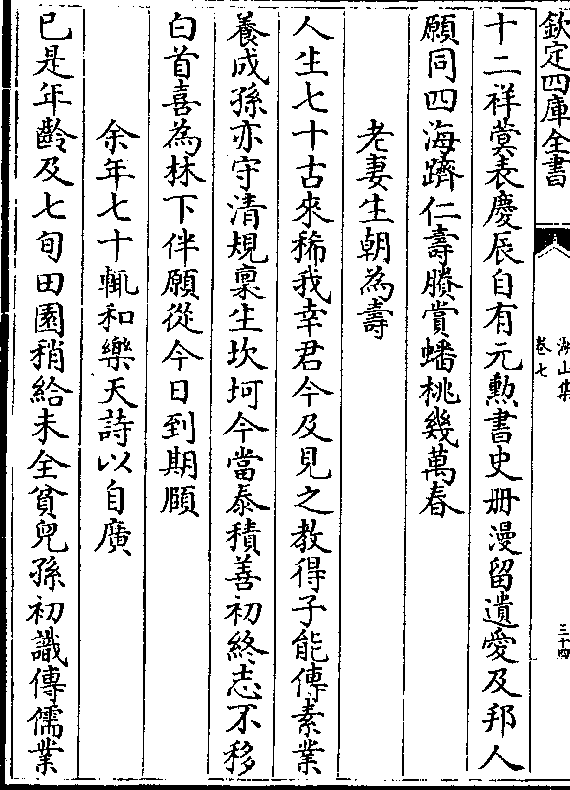 欽定四庫全書
湖山集
卷七
三十四
十二祥蓂表慶辰自有元勲書史册漫留遺愛及邦人
願同四海躋仁壽賸賞蟠桃幾萬春
老妻生朝為壽
人生七十古來稀我幸君今及見之教得子能傳素業
養成孫亦守清規稟生坎坷今當泰積善初終志不移
白首喜為林下伴願從今日到期頤
余年七十輒和樂天詩以自廣
已是年齡及七旬田園稍給未全貧兒孫初識傳儒業